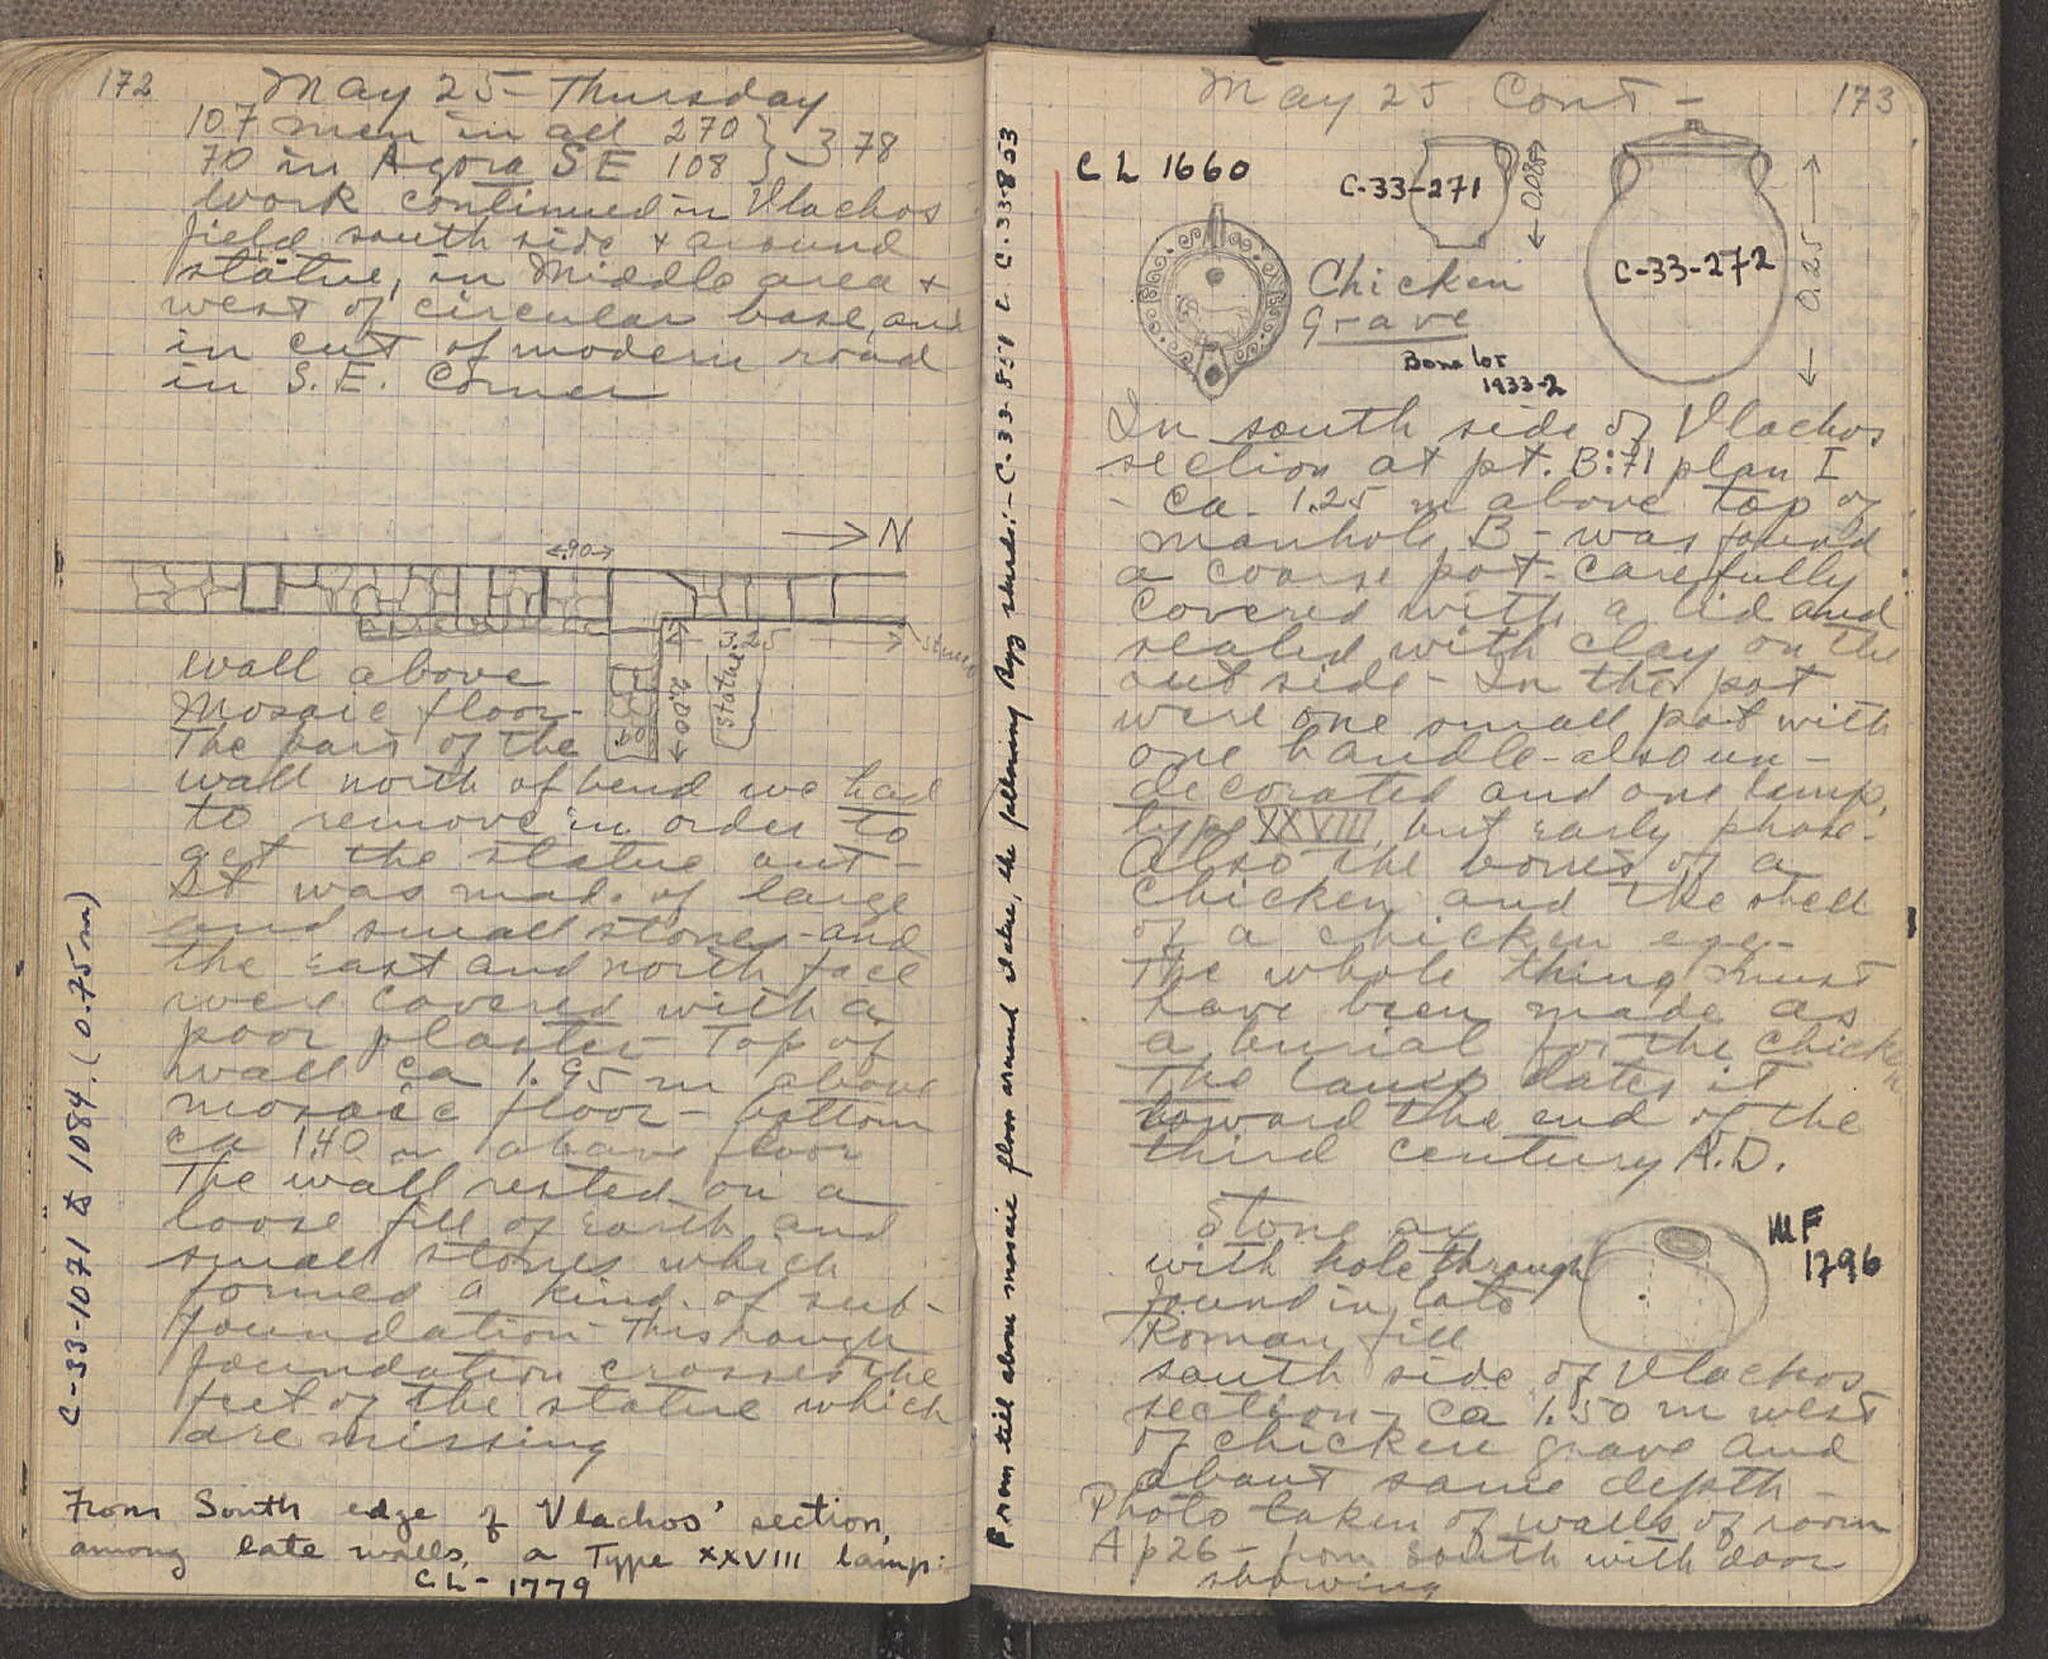 172
May 25 - Thursday
107 men in all 270 } 378
70 in Agora SE 108
Work continued in Vlachos
field south side + around
statue, in Middle area +
west of circular base, and
in cut of modern road
in S.E. Corner
→ N
.90
3.25
stucco
2.00
Statue
.60
wall above
Mosaic floor -
The part of the
wall north of bend we had
to remove in order to
get the statue out -
It was made of large
and small stones - and
the east and north face
were covered with a
poor plaster Top of
wall ca 1.95 m above
mosaic floor - bottom
ca 1.40 m above floor
The wall rested on a
loose fill of earth and
small stones which
formed a kind of sub-
foundation - This rough
foundation crosses the
feet of the statue which
are missing
From South edge of Vlachos' section,
among late walls, a Type XXVIII lamp:
CL - 1779
C-33-1071 to 1084. (0.75m)
From till above mosaic floor around statue, the following Byz sherds:- C-33-851 C-33-853
May 25 Cont -
173
CL 1660
C-33-271
0.085
C-33-272
0.25
Chicken
grave
Bone lot
1933-2
In south side of Vlachos
section at pt. B:71 plan I
- ca. 1.25 m above top of
manhole B - was found
a coarse pot - carefully
covered with a lid and
sealed with clay on the
out side - In the pot
were one small pot with
one handle - also un-
decorated and one lamp,
type XXVIII, but early phase -
Also the bones of a
chicken and the shell
of a chicken egg -
The whole thing must
have been made as
a burial for the chicken
The lamp dates it
toward the end of the
third century A.D.
Stone ax
with hole through
found in late
Roman fill
MF
1796
south side of Vlachos
section - ca 1.50 m west
of chicken grave and
about same depth -
Photo taken of walls of room
A p 26 - from south with door
showing